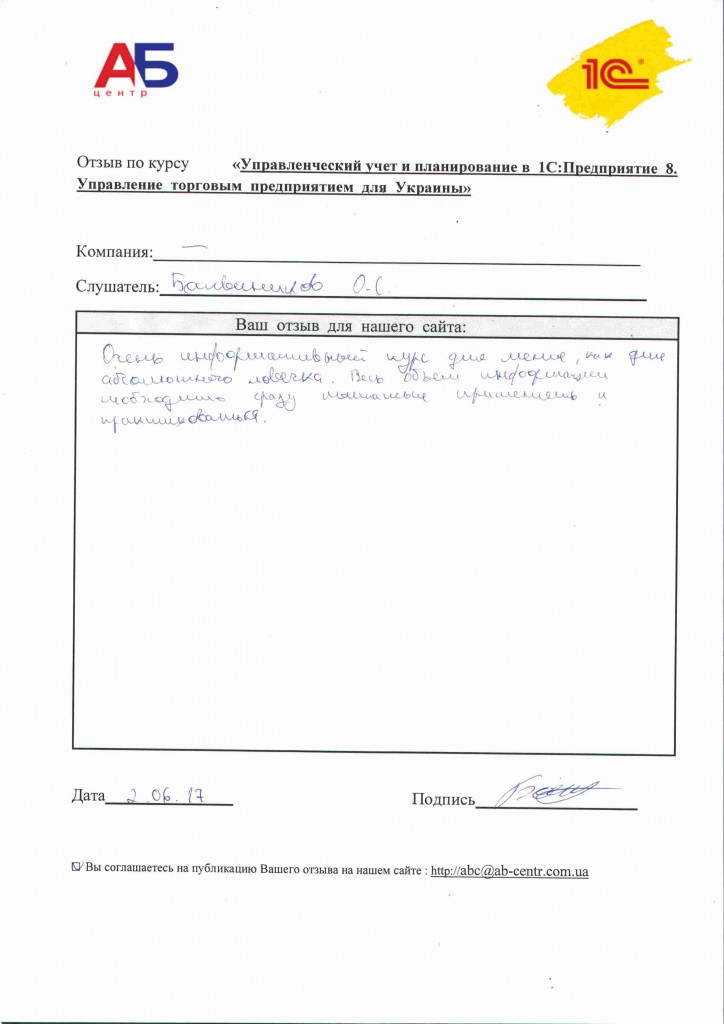 АБ
центр
1С®
Отзыв по курсу «Управленческий учет и планирование в 1С:Предприятие 8.
Управление торговым предприятием для Украины»
Компания: —
Слушатель: О.С.
Ваш отзыв для нашего сайта:
Очень информативный курс для меня, как для
абсолютного новичка. Весь объем информации
необходимо сразу пытаться применять и
практиковаться.
Дата 2.06.17
Подпись
Вы соглашаетесь на публикацию Вашего отзыва на нашем сайте : http://abc@ab-centr.com.ua